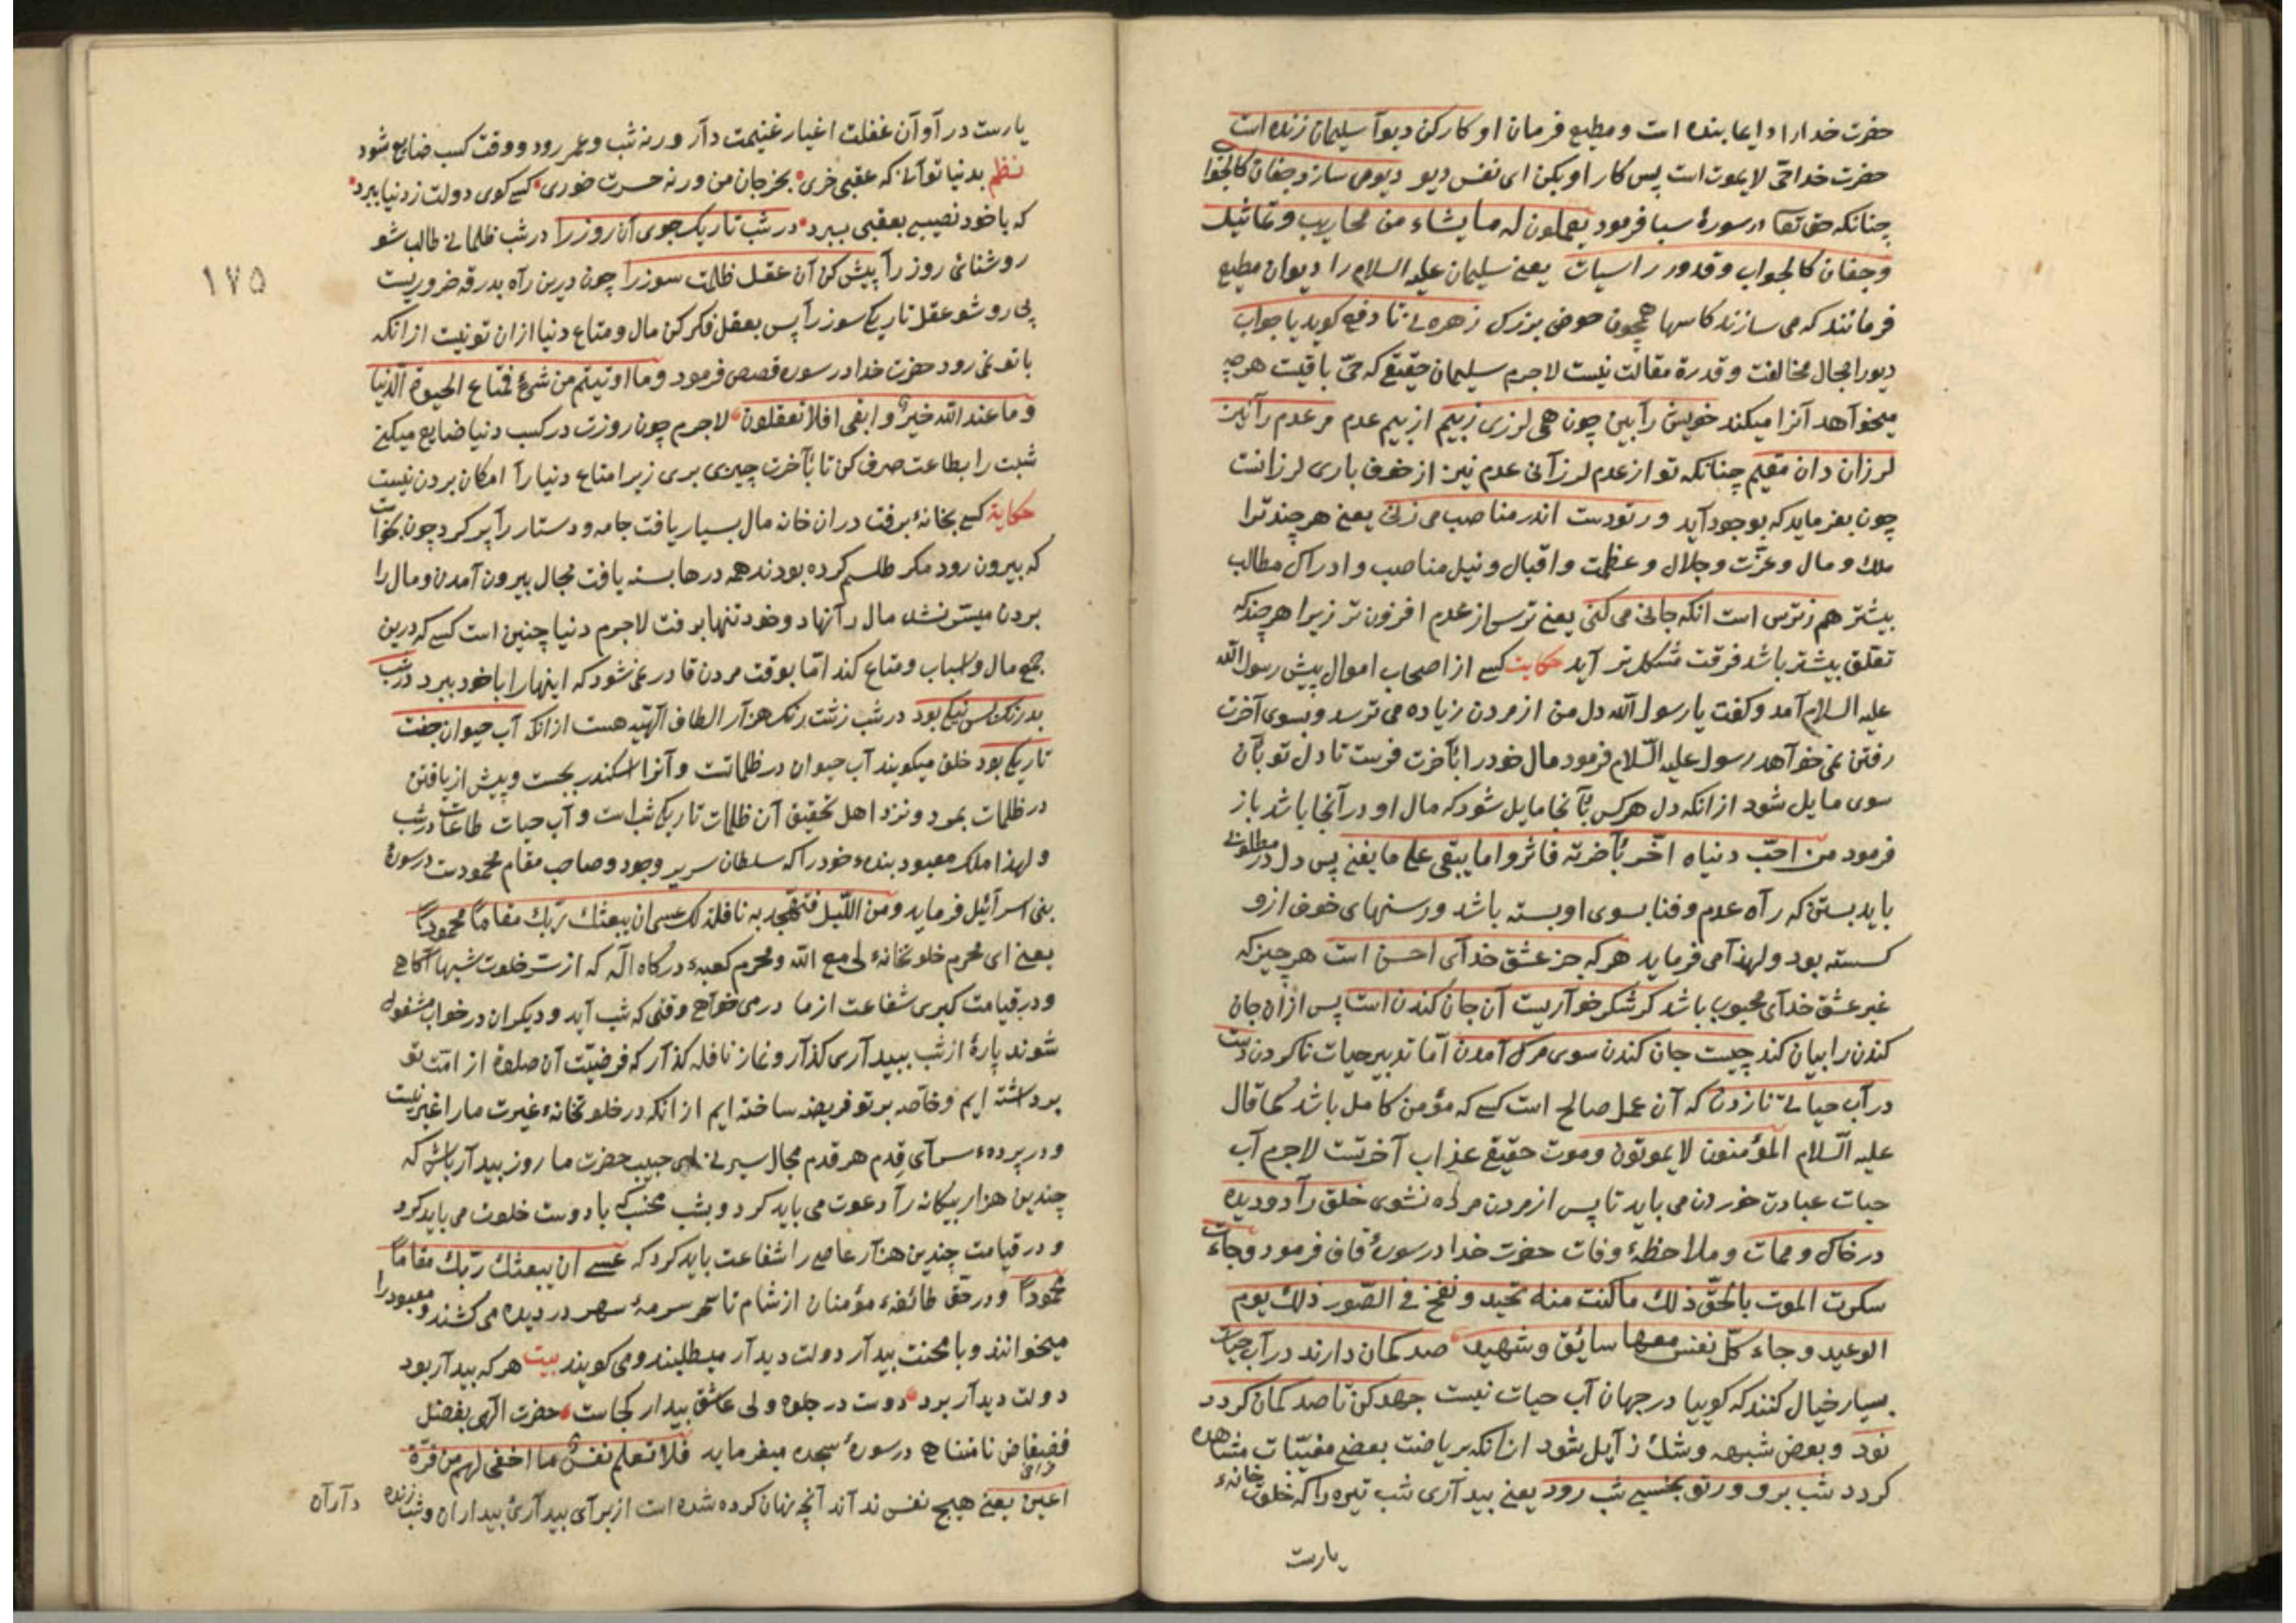 حضرت خدا را داعا بنده است و مطیع فرمان او کارکن دیوآ سلیمان زنده است
حضرت خدا حیّ لا یموت است پس کار او بکن ای نفس دیو دیو می سازد جفان کالجوا
چنانکه حق تعا در سورهٔ سبا فرمود یعملون له ما یشاء من محاریب و تماثیل
وجفان کالجواب وقدور راسیات یعنے سلیمان علیه السلام را دیوان مطیع
فرمانند که می سازند کاسها همچون حوض بزرک زهره نے تا دفع کوید یا جواب
دیورا مجال مخالفت و قدرة مقالت نیست لاجرم سلیمان حقیقے که حیّ باقیت هرچه
میخوآهد آنرا میکند خویش رآ بین چون همی لرزی زبیم از بیم عدم مر عدم رآ نیز
لرزان دان مقیم چنانکه تو از عدم لرزآنی عدم نیز از خوف باری لرزانت
چون بفرماید که بوجود آید ور تو دست اندر مناصب می زنی یعنے هر چند ترا
ملک و مال و عزّت و جلال و عظمت و اقبال و نیل مناصب و ادراک مطالب
بیشتر هم ز ترس است انکه جانی می کنی یعنے ترس از عدم افزون تر زیرا هر چند که
تعلّق بیشتر باشد فرقت مشکل تر آید حکایت کسے از اصحاب اموال پیش رسول الله
علیه السلام آمد و کفت یا رسول الله دل من از مردن زیاده می ترسد و بسوی آخرت
رفتن نمی خوآهد رسول علیه السّلام فرمود مال خود را بآخرت فرست تا دل تو بآن
سوی مایل شود از انکه دل هر کس بآنجا مایل شود که مال او در آنجا باشد باز
فرمود من احبّ دنیاه اضّر بآخرته فاثروا ما یبقی علی ما یفنی پس دل در مطلوبے
باید بستن که رآه عدم و فنا بسوی او بسته باشد و رسنهای خوف ازو
کسسته بود و لهذا می فرماید هر که جز عشق خدآی احسن است هر چیز که
غیر عشق خدآی محبوب باشد کر شکر خوآریست آن جان کندن است پس از آن جان
کندن را بیان کند چیست جان کندن سوی مرک آمدن امّا تدبیر حیات ناکردن دست
در آب حیاتے نا زدن که آن عمل صالح است کسے که مؤمن کامل باشد کما قال
علیه السّلام المؤمنون لا یموتون و موت حقیقے عذاب آخرتست لاجرم آب
حیات عبادت خوردن می باید تا پس از مردن مرده نشوی خلق رآ دو دیده
در خاک و ممات و ملاحظهٔ وفات حضرت خدا در سورهٔ قاف فرمود وجاءت
سکرت الموت بالحقّ ذلک ما کنت منه تحید و نفخ فی الصّور ذلک یوم
الوعید وجاءت کلّ نفس معها سائق وشهید صد کمان دارند در آب حیات
بسیار خیال کنند که کوییا در جهان آب حیات نیست جهد کن تا صد کمان کردد
نود و بعض شبهه و شک زآیل شود از انکه بریاضت بعضے مغیّبات مشاهده
کردد شب برو ور تو بخسپے شب رود یعنے بیدآری شب تیره را که خلوت خانهٔ
یارست
یارست در آ و آن غفلت اغیار غنیمت دآر ور نه شب و عمر رود و وقت کسب ضایع شود
نظم بدنیا توآنی که عقبی خری بخر جان من ور نه حسرت خوری کسے کوی دولت ز دنیا ببرد
که با خود نصیبے بعقبی ببرد در شب تاریک جوی آن روز را در شب ظلمانے طالب شو
روشنائی روز رآ پیش کن آن عقل ظلمت سوز را چون درین رآه بدرقه ضروریست
پی رو شو عقل تاریکے سوز رآ پس بعقل فکر کن مال و متاع دنیا ازان تو نیست از انکه
با تو نمی رود حضرت خدا در سوره قصص فرمود وما اوتیتم من شیٔ فمتاع الحیوة الدّنیا
وما عند الله خیرٌ وابقی افلا تعقلون لاجرم چون روزت در کسب دنیا ضایع میکنے
شبت را بطاعت صرف کن تا بآخرت چیزی بری زیرا متاع دنیا رآ امکان بردن نیست
حکایة کسے بخانهٔ برفت در ان خانه مال بسیار یافت جامه و دستار رآ پر کرد چون خواست
که بیرون رود مکر طلسم کرده بودند همه درها بسته یافت مجال بیرون آمدن و مال را
بردن میسّر نشد مال رآ نهاد و خود تنها برفت لاجرم دنیا چنین است کسے که درین
جمع مال و اسباب و متاع کند امّا بوقت مردن قادر نمی شود که اینها را با خود ببرد در شب
بد رنک بس نیکے بود در شب زشت رنک هزآر الطاف الٓهیّه هست از انکه آب حیوان جفت
تاریکے بود خلق میکویند آب حیوان در ظلماتست و آنرا اسکندر بجست و پیش از یافتن
در ظلمات بمرد و نزد اهل تحقیق آن ظلمات تاریکے شب است و آب حیات طاعات در شب
و لهذا ملک معبود بندهٔ خود را که سلطان سریر وجود و صاحب مقام محمودست در سورهٔ
بنی اسرآئیل فرماید ومن اللّیل فتهجّد به نافلة لک عسی ان یبعثک ربّک مقاماً محموداً
یعنے ای محرم خلوتخانهٔ لی مع الله و محرم کعبهٔ درکاه الٓه که از سرّ خلوت شبها آکاهے
و در قیامت کبری شفاعت از ما در می خوآهے وقتی که شب آید و دیکران در خواب مشغول
شوند پارهٔ از شب ببیدآری کذآر و نماز نافله کذآر که فرضیّت آن صلوة از امّت تو
برداشته ایم و خاصّه بر تو فریضه ساخته ایم از انکه در خلوتخانهٔ غیرت ما را غیر نیست
و در پردهٔ سرآی قدم هر قدم مجال سیر نے ای حبیب حضرت ما روز بیدآر باش که
چندین هزار بیکانه رآ دعوت می باید کرد و بشب مخسب که با دوست خلوت می باید کرد
و در قیامت چندین هزآر عاصے را شفاعت باید کرد که عسے ان یبعثک ربّک مقاماً
محموداً و در حقّ طائفهٔ مؤمنان از شام تا سحر سرمهٔ سهر در دیده می کشند و معبود را
میخوانند و با محنت بیدآر دولت دیدآر میطلبند و می کویند بیت هر که بیدآر بود
دولت دیدآر برد دوست در جلوه ولی عاشق بیدار کجاست حضرت الٓهی بفضل
فیض فیاض نامتناهے در سورهٔ سجده میفرماید فلا تعلم نفسٌ ما اخفی لهم من قرّة
اعین یعنے هیچ نفس ندآند آنچه نهان کرده شده است از برآی بیدآرئ بیداران و شب زنده
دآرآن
١٧٥